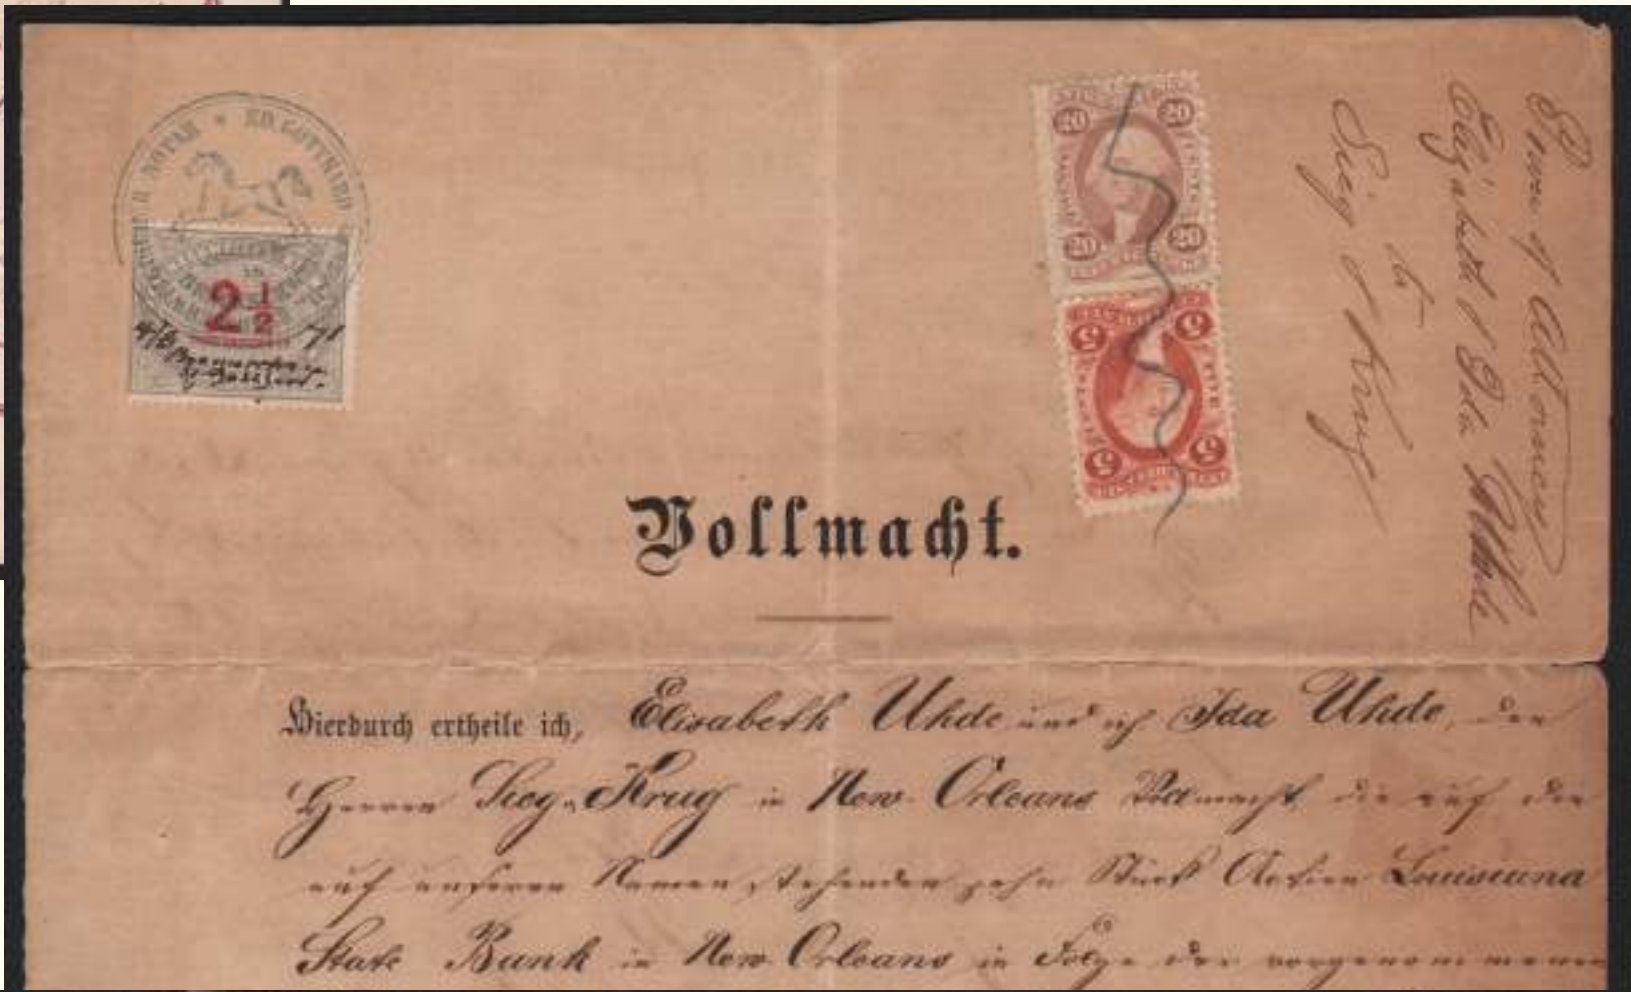 & NOTAR * ED. GOTTHARD
2 1/2
71
20 20
20 20
5 5
5 5
Power of Attorney
Elizabeth & Ida Uhde
to
Sieg & Krug
Vollmacht.
Hierdurch ertheile ich, Elisabeth Uhde und ich Ida Uhde, den
Herren Sieg & Krug in New Orleans Vollmacht die auf die
auf unseren Namen stehenden zehn Stück Actien Louisiana
State Bank in New Orleans in Folge der vorgenommenen